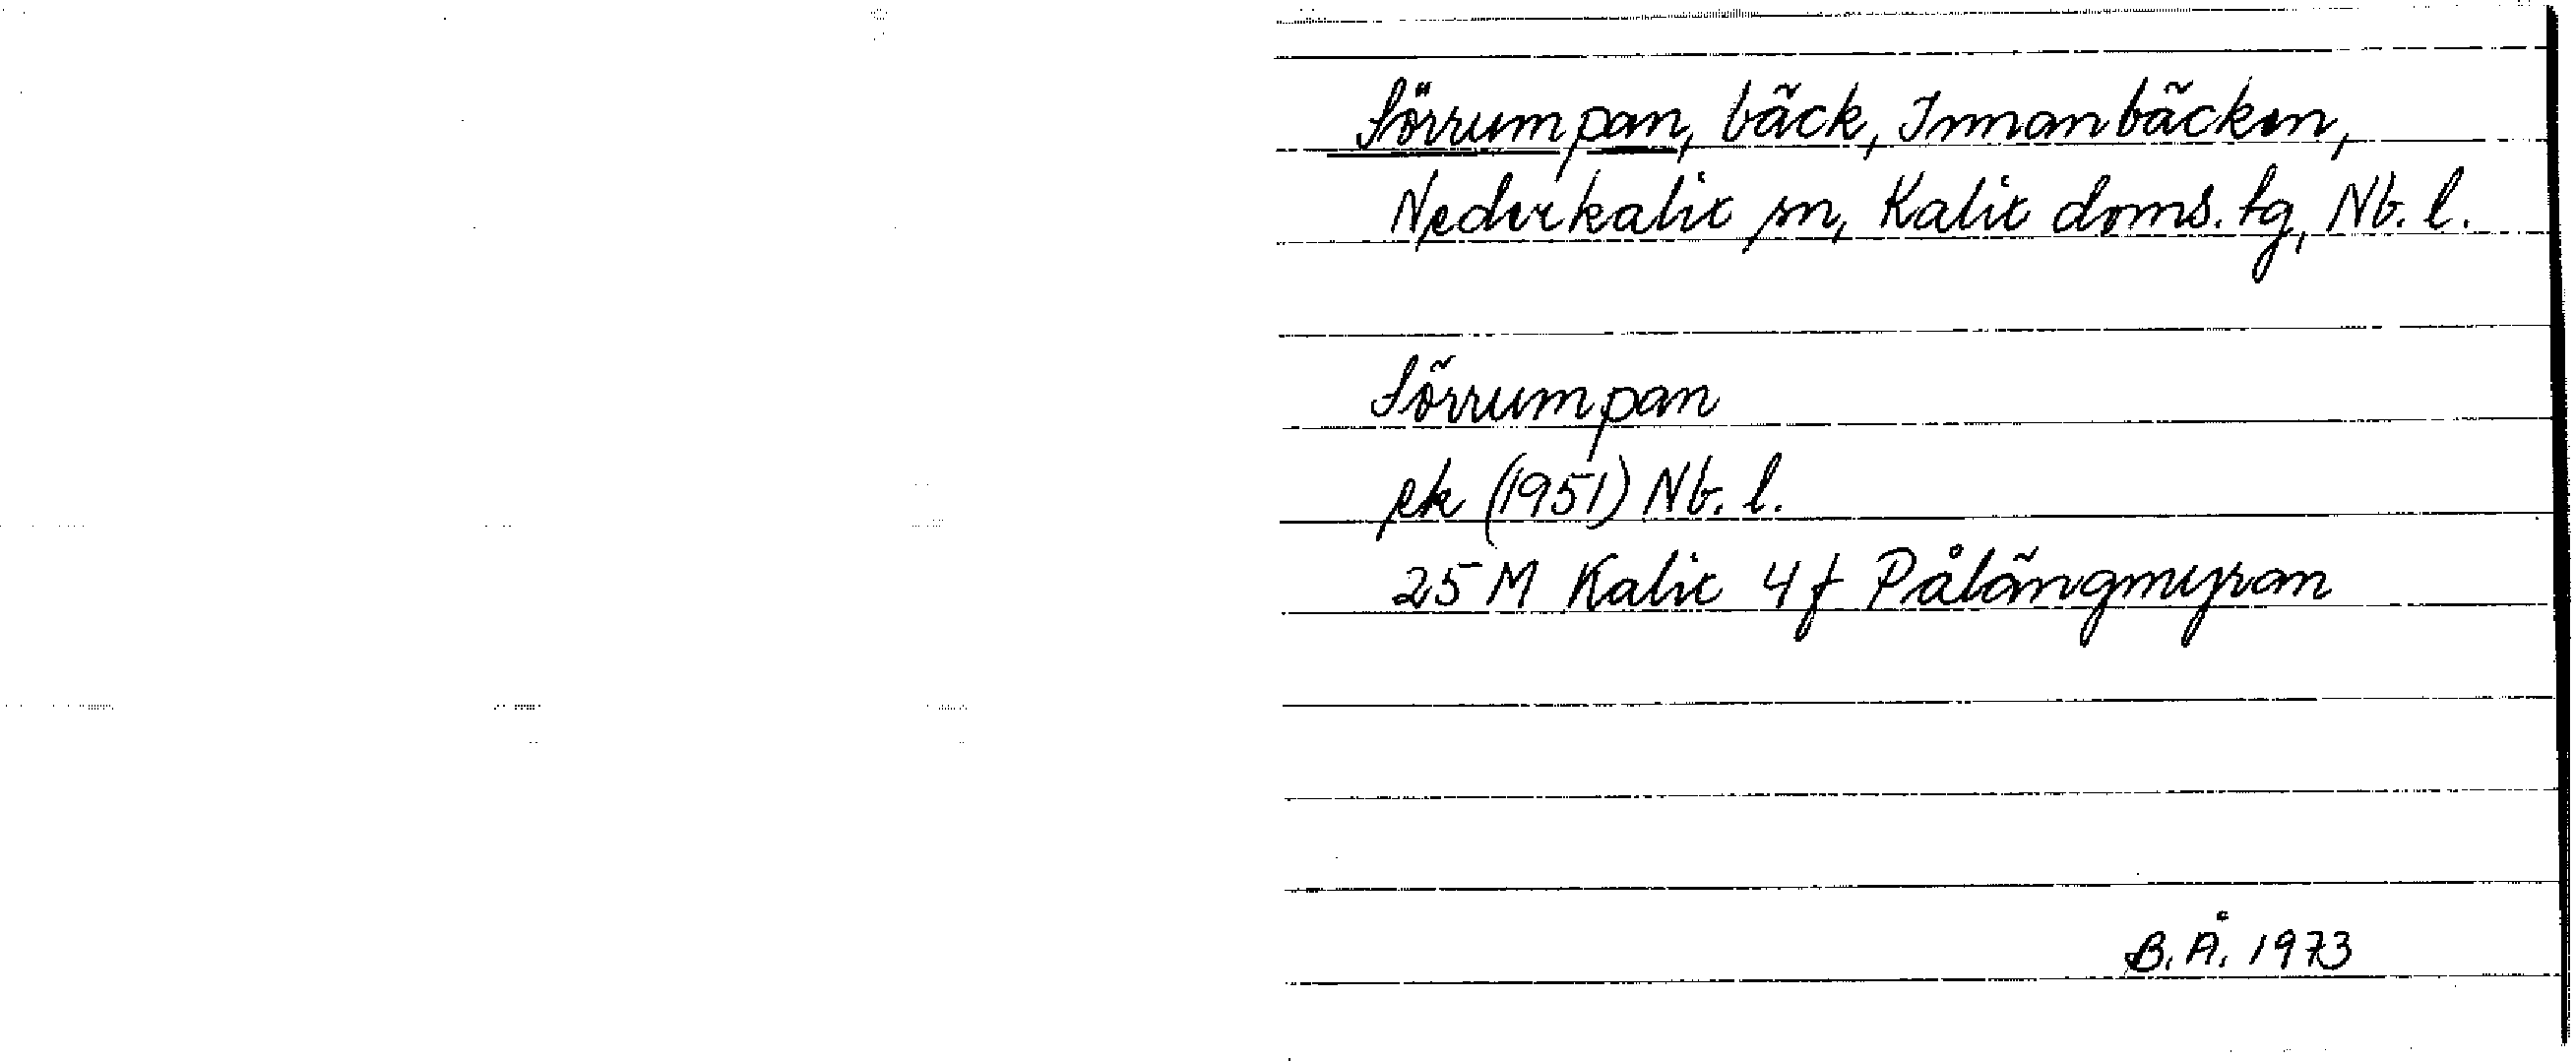 Sörrumpan, bäck, Innanbäcken,
Nederkalix sn, Kalix doms. tg, Nb. l.
Sörrumpan
ek (1951) Nb. l.
25 M Kalix 4f Pålängmyran
B. Å. 1973